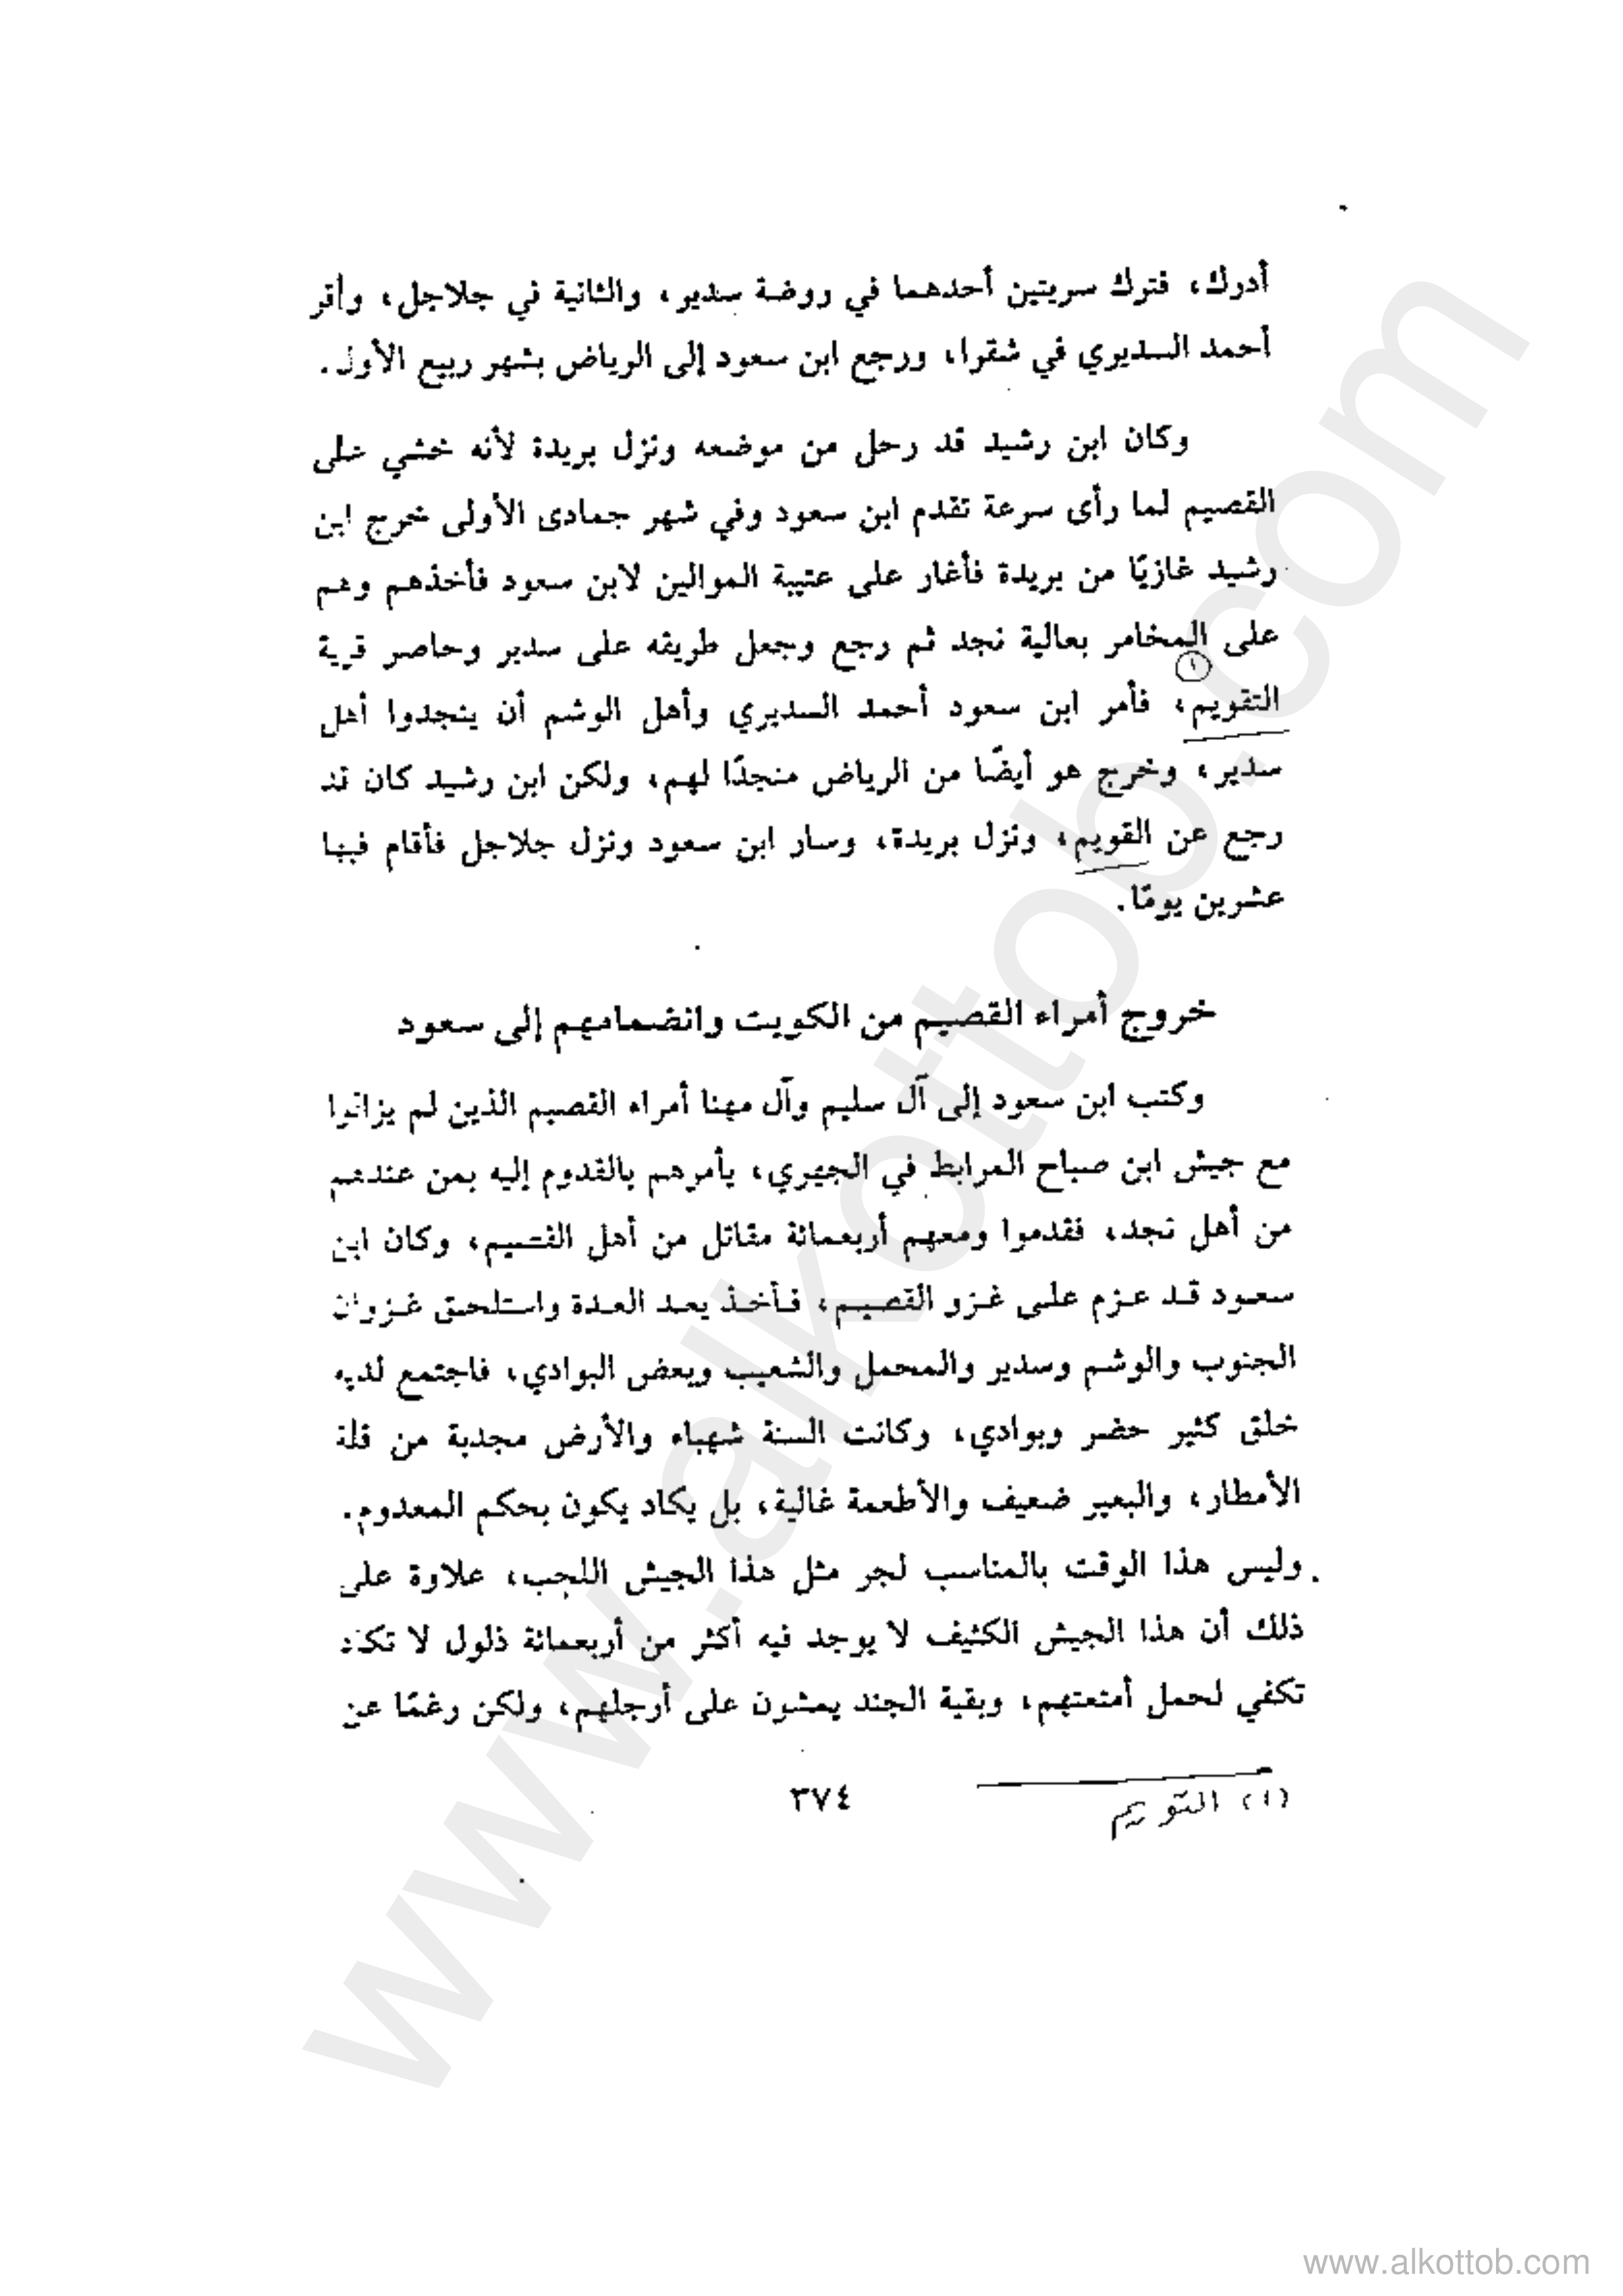 أدرك، فترك سريتين أحدهما في روضة سدير، والثانية في جلاجل، وأقر
أحمد السديري في شقراء، ورجع ابن سعود إلى الرياض بشهر ربيع الأول.
وكان ابن رشيد قد رحل من موضعه ونزل بريدة لأنه خشي على
القصيم لما رأى سرعة تقدم ابن سعود وفي شهر جمادى الأولى خرج ابن
رشيد غازيًا من بريدة فأغار على عتيبة الموالين لابن سعود فأخذهم وهم
على المخامر بعالية نجد ثم رجع وجعل طريقه على سدير وحاصر قرية
التقويم(١)، فأمر ابن سعود أحمد السديري وأهل الوشم أن ينجدوا أهل
سدير، وخرج هو أيضًا من الرياض منجدًا لهم، ولكن ابن رشيد كان قد
رجع عن القويم، ونزل بريدة، وسار ابن سعود ونزل جلاجل فأقام فيها
عشرين يومًا.
خروج أمراء القصيم من الكويت وانضمامهم إلى سعود
وكتب ابن سعود إلى آل سليم وآل مهنا أمراء القصيم الذين لم يزالوا
مع جيش ابن صباح المرابط في الجهري، يأمرهم بالقدوم إليه بمن عندهم
من أهل نجد، فقدموا ومعهم أربعمائة مقاتل من أهل القصيم، وكان ابن
سعود قد عزم على غزو القصيم، فأخذ يعد العدة واستلحق غزوان
الجنوب والوشم وسدير والمحمل والشعيب وبعض البوادي، فاجتمع لديه
خلق كثير حضر وبوادي، وكانت السنة شهباء والأرض مجدبة من قلة
الأمطار، والبعير ضعيف والأطعمة غالية، بل يكاد يكون بحكم المعدوم.
وليس هذا الوقت بالمناسب لجر مثل هذا الجيش اللجب، علاوة على
ذلك أن هذا الجيش الكثيف لا يوجد فيه أكثر من أربعمائة ذلول لا تكاد
تكفي لحمل أمتعتهم، وبقية الجند يمشون على أرجلهم، ولكن رغمًا عن
(١) التويم
٣٧٤
www.alkottob.com
www.alkottob.com